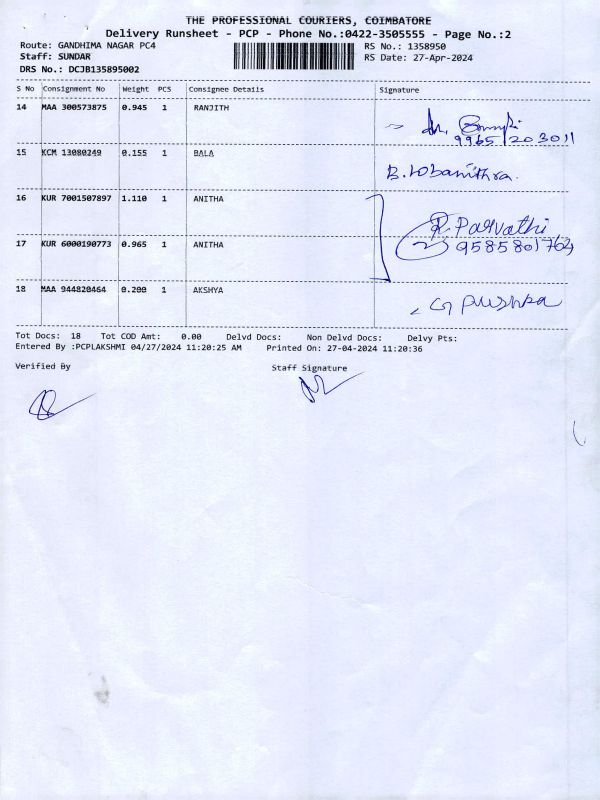 THE PROFESSIONAL COURIERS, COIMBATORE
Delivery Runsheet - PCP - Phone No.:0422-3505555 - Page No.:2
Route: GANDHIMA NAGAR PC4 RS No.: 1358950
Staff: SUNDAR RS Date: 27-Apr-2024
DRS No.: DCJB135895002
S No Consignment No Weight PCS Consignee Details Signature
14 MAA 300573875 0.945 1 RANJITH
9965/203011
15 KCM 13080249 0.155 1 BALA
B.Lobanithra.
16 KUR 7001507897 1.110 1 ANITHA
R. Parvathi
17 KUR 6000190773 0.965 1 ANITHA 9585801764
18 MAA 944820464 0.200 1 AKSHYA
G pushpa
Tot Docs: 18 Tot COD Amt: 0.00 Delvd Docs: Non Delvd Docs: Delvy Pts:
Entered By :PCPLAKSHMI 04/27/2024 11:20:25 AM Printed On: 27-04-2024 11:20:36
Verified By Staff Signature